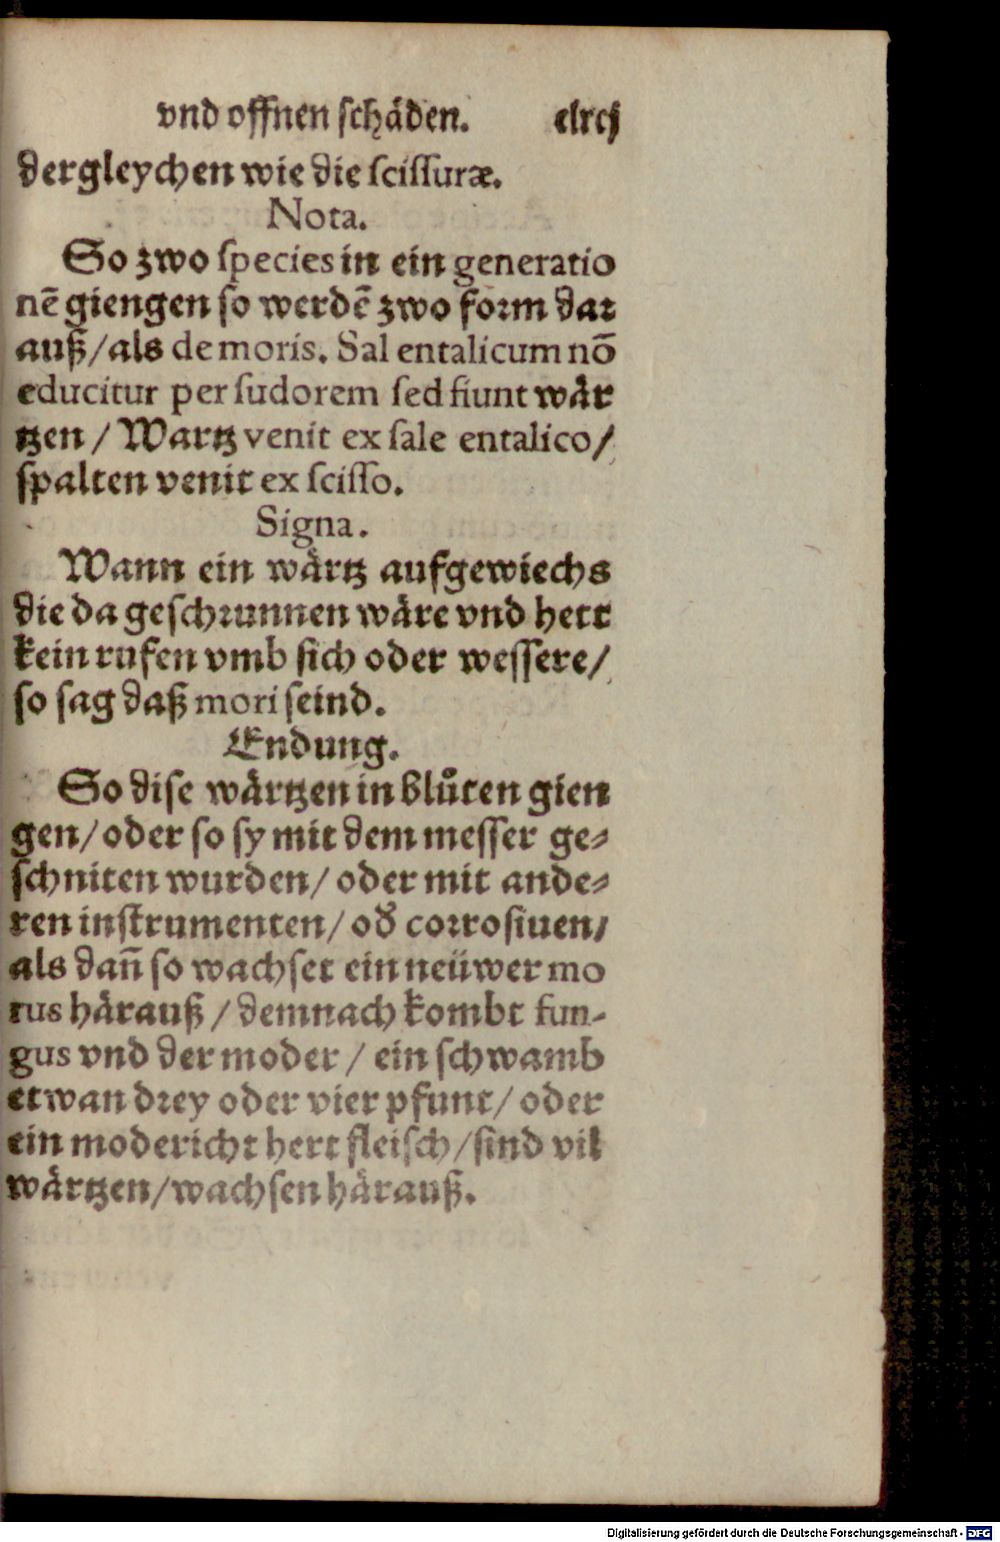 vnd offnen schäden. clxcj
dergleychen wie die scissuræ.
Nota.
So zwo species in ein generatio
nē giengen so werdē zwo form dar
auß/als de moris. Sal entalicum nō
educitur per sudorem sed fiunt wär
tzen / Wartz venit ex sale entalico/
spalten venit ex scisso.
Signa.
Wann ein wärtz aufgewiechs
die da geschrunnen wäre vnd hett
kein rufen vmb sich oder wessere/
so sag daß mori seind.
Endung.
So dise wärtzen in blůten gien
gen/oder so sy mit dem messer ge⸗
schniten wurden/ oder mit ande⸗
ren instrumenten/ od̕ corrosiuen/
als dañ so wachset ein neüwer mo
rus härauß / demnach kombt fun-
gus vnd der moder / ein schwamb
etwan drey oder vier pfunt/ oder
ein modericht hert fleisch/sind vil
wärtzen/wachsen härauß.
Digitalisierung gefördert durch die Deutsche Forschungsgemeinschaft - DFG